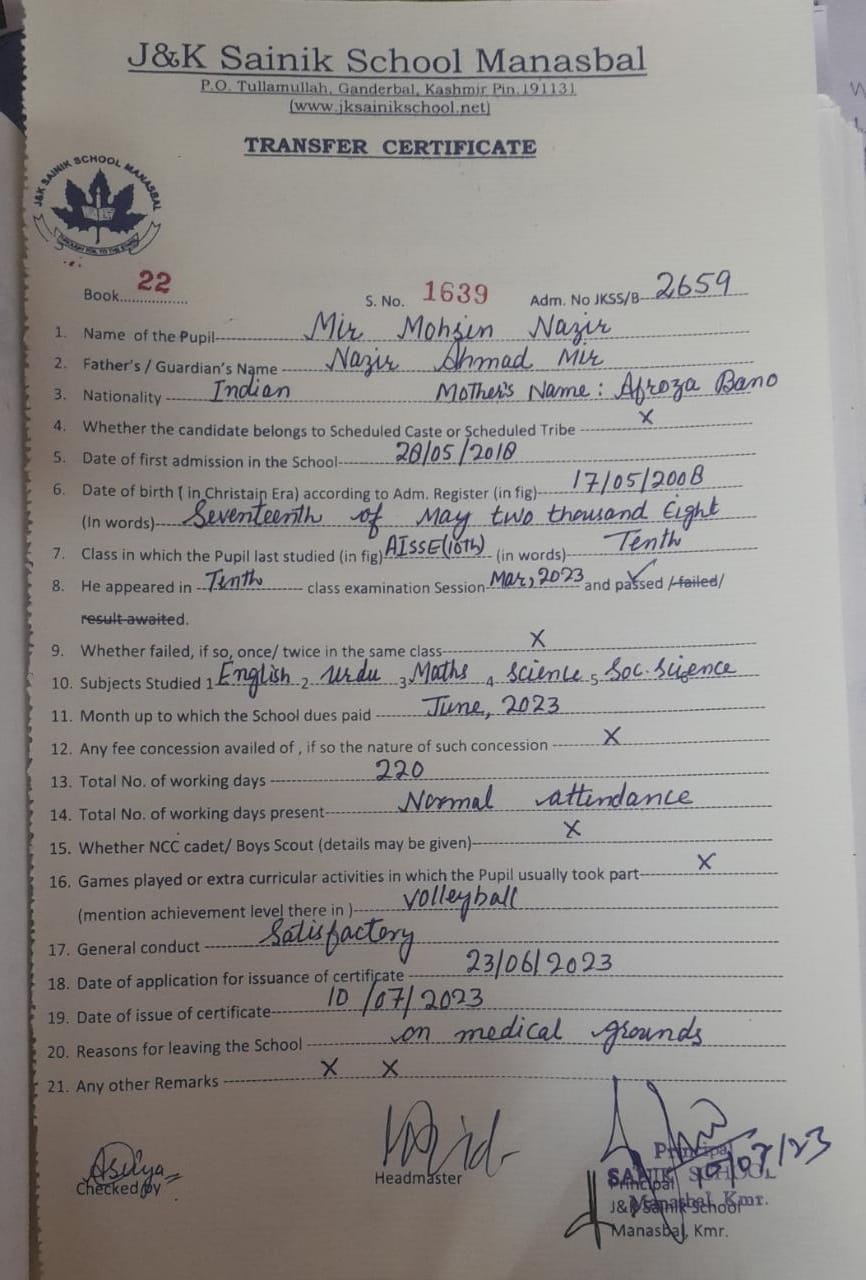 J&K Sainik School Manasbal
P.O. Tullamullah, Ganderbal, Kashmir Pin.191131
(www.jksainikschool.net)
TRANSFER CERTIFICATE
J&K SAINIK SCHOOL MANASBAL
Book 22 S. No. 1639 Adm. No JKSS/B- 2659
1. Name of the Pupil Mir Mohsin Nazir
2. Father's / Guardian's Name Nazir Ahmad Mir
3. Nationality Indian Mother's Name : Afroza Bano
4. Whether the candidate belongs to Scheduled Caste or Scheduled Tribe X
5. Date of first admission in the School 28/05/2018
6. Date of birth ( in Christain Era) according to Adm. Register (in fig) 17/05/2008
(In words) Seventeenth of May two thousand Eight
7. Class in which the Pupil last studied (in fig) AISSE(10TH) (in words) Tenth
8. He appeared in Tenth class examination Session Mar, 2023 and passed /failed/
result awaited.
9. Whether failed, if so, once/ twice in the same class X
10. Subjects Studied 1 English 2 Urdu 3 Maths 4 Science 5 Soc. Science
11. Month up to which the School dues paid June, 2023
12. Any fee concession availed of , if so the nature of such concession X
13. Total No. of working days 220
14. Total No. of working days present Normal attendance
15. Whether NCC cadet/ Boys Scout (details may be given) X
16. Games played or extra curricular activities in which the Pupil usually took part X
(mention achievement level there in ) Volleyball
17. General conduct Satisfactory
18. Date of application for issuance of certificate 23/06/2023
19. Date of issue of certificate 10/07/2023
20. Reasons for leaving the School on medical grounds
21. Any other Remarks X X
Checked by
Headmaster
Principal
SAINIK SCHOOL
Manasbal, Kmr.
10/07/23
Principal
J&K Sainik School
Manasbal, Kmr.